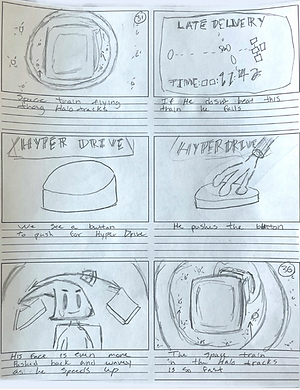 31
LATE DELIVERY
TIME:00:17:42
Space train flying
along Halo tracks
If He doesnt beat this
train he fails
HYPER DRIVE
HYPER DRIVE
We see a button
to push for Hyper Drive
He pushes the button
36
His face is even more
Pushed back and wavey
as he speeds up
The space train
in the Halo tracks
is so fast